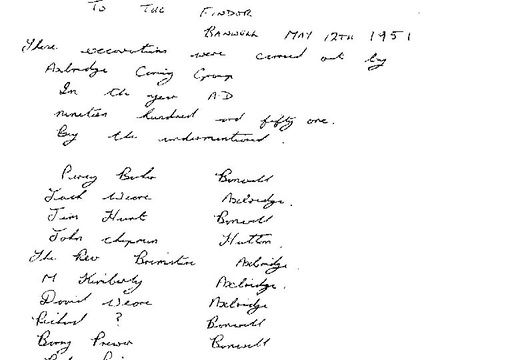 To THE FINDOR
BANWELL MAY 12TH 1951
These excavations were carried out by
Axbridge Caving Group
In the year A.D
nineteen hundred and fifty one.
by the undermentioned.
Percy Banwell
Jack Weare Axbridge.
Jim Hunt Banwell
John Chapman Hutton.
The Rev Axbridge.
M Kimberly Axbridge.
David Weare Axbridge
Richard ? Banwell
Barry Banwell